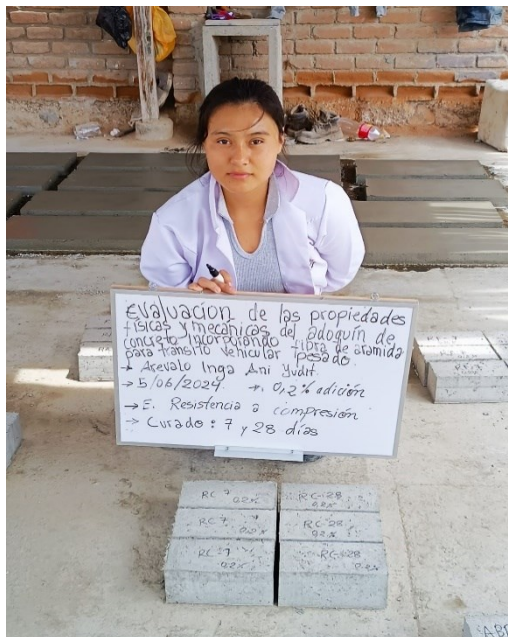 Evaluación de las propiedades
físicas y mecánicas del adoquín de
concreto incorporando fibra de aramida
para tránsito vehicular pesado.
→ Arevalo Inga Ani Yudit.
→ 5/06/2024. → 0,2% adición
→ E. Resistencia a compresión
→ Curado: 7 y 28 días
RC 7 0.2% RC-28 0.2%
RC 7 0.2% RC 28 0.2%
RC 7 0.2% RC-28 0.2%